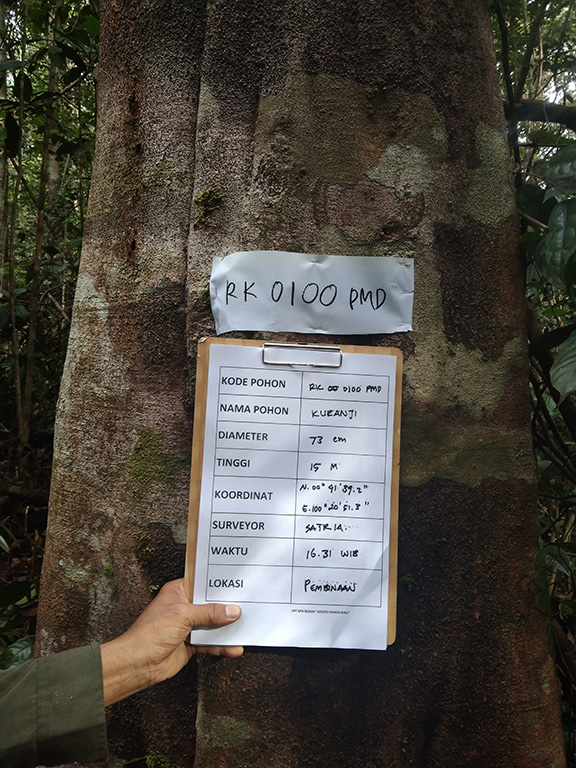 RK 0100 PMD
KODE POHON RK 0100 PMD
NAMA POHON KURANJI
DIAMETER 73 cm
TINGGI 15 M
KOORDINAT N. 00° 41' 39.2"
E. 100° 20' 51.3"
SURVEYOR SATRIA
WAKTU 16.31 WIB
LOKASI PEMBINAAN